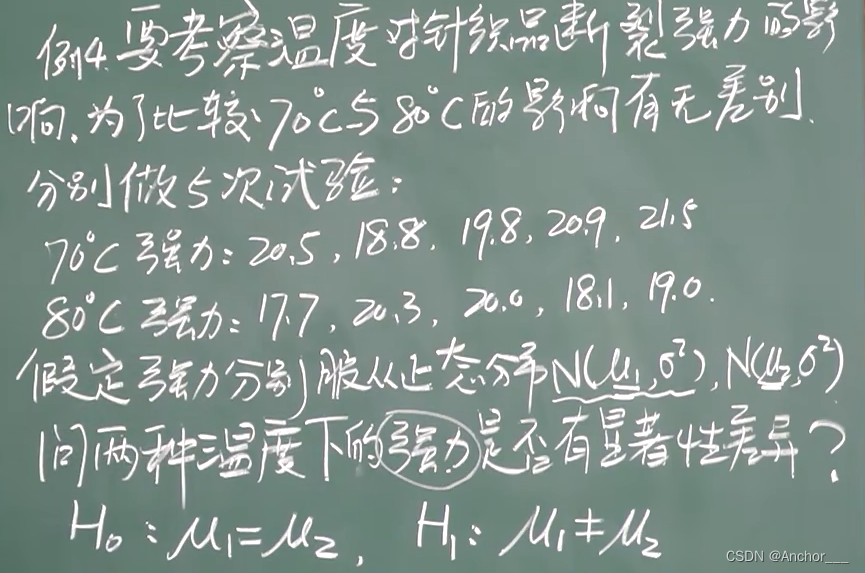 例4.要考察温度对针织品断裂强力的影
响.为了比较70°C与80°C的影响有无差别.
分别做5次试验:
70°C强力:20.5,18.8,19.8,20.9,21.5
80°C强力:17.7,20.3,20.0,18.1,19.0.
假定强力分别服从正态分布N(μ₁,σ²),N(μ₂,σ²)
问两种温度下的强力是否有显著性差异?
H₀:μ₁=μ₂, H₁:μ₁≠μ₂
CSDN @Anchor___